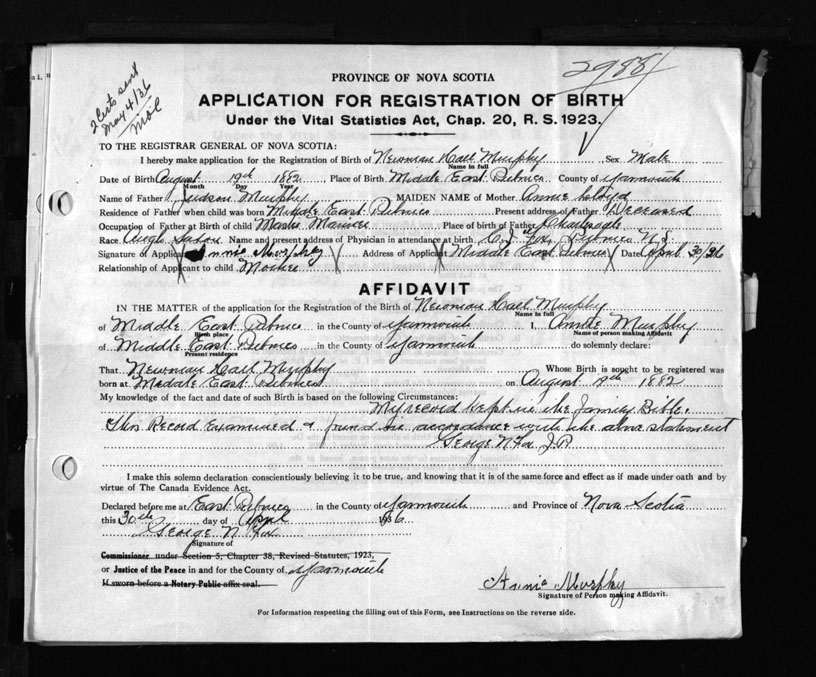 2988
2 Certs sent
May 4/36
PROVINCE OF NOVA SCOTIA
APPLICATION FOR REGISTRATION OF BIRTH
Under the Vital Statistics Act, Chap. 20, R. S. 1923.
TO THE REGISTRAR GENERAL OF NOVA SCOTIA:
I hereby make application for the Registration of Birth of Newman Hall Murphy Sex Male
Name in full
Date of Birth August 19th 1882 Place of Birth Middle East Pubnico County of Yarmouth
Month Day Year
Name of Father Judson Murphy MAIDEN NAME of Mother Annie Lloyd
Residence of Father when child was born Middle East Pubnico Present address of Father Deceased
Occupation of Father at Birth of child Master Mariner Place of birth of Father
Race Anglo Saxon Name and present address of Physician in attendance at birth C. J. Fox, Pubnico N.S.
Signature of Applicant Annie Murphy Address of Applicant Middle East Pubnico Date April 30/36
Relationship of Applicant to child Mother
AFFIDAVIT
IN THE MATTER of the application for the Registration of the Birth of Newman Hall Murphy
Name in full
of Middle East Pubnico in the County of Yarmouth I, Annie Murphy
Birth place Name of person making Affidavit
of Middle East Pubnico in the County of Yarmouth do solemnly declare:
Present residence
That Newman Hall Murphy Whose Birth is sought to be registered was
born at Middle East Pubnico on August 19th 1882
My knowledge of the fact and date of such Birth is based on the following Circumstances:
My record kept in the family Bible.
This Record Examined & found in accordance with the above statement
George N Fox J.P.
I make this solemn declaration conscientiously believing it to be true, and knowing that it is of the same force and effect as if made under oath and by
virtue of The Canada Evidence Act.
Declared before me at East Pubnico in the County of Yarmouth and Province of Nova Scotia
this 30th day of April 1936
George N. Fox
Signature of
Commissioner under Section 5, Chapter 38, Revised Statutes, 1923,
or Justice of the Peace in and for the County of Yarmouth
If sworn before a Notary Public affix seal.
Annie Murphy
Signature of Person making Affidavit.
For Information respecting the filling out of this Form, see Instructions on the reverse side.